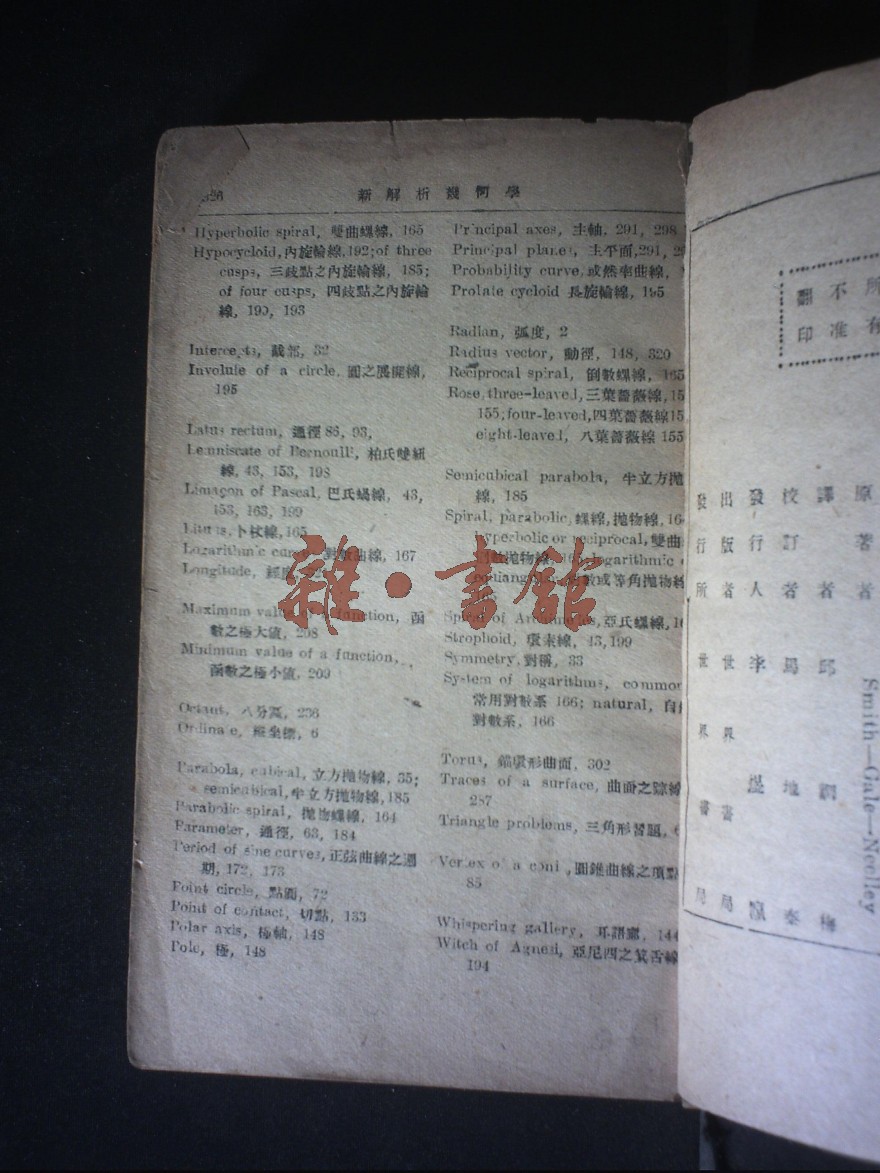 326
新解析幾何學
Hyperbolic spiral, 雙曲螺線, 165
Hypocycloid, 內旋輪線, 192; of three
cusps, 三歧點之內旋輪線, 185;
of four cusps, 四歧點之內旋輪
線, 190, 193
Intercepts, 截部, 32
Involute of a circle, 圓之展開線,
195
Latus rectum, 通徑 86, 93,
Lemniscate of Bernoulli, 柏氏雙紐
線, 43, 153, 198
Limaçon of Pascal, 巴氏蝸線, 43,
153, 163, 199
Lituus, 卜杖線, 165
Logarithmic curve, 對數曲線, 167
Longitude, 經度
Maximum value of a function, 函
數之極大值, 208
Minimum value of a function,
函數之極小值, 209
Octant, 八分區, 236
Ordinate, 縱坐標, 6
Parabola, cubical, 立方拋物線, 35;
semicubical, 半立方拋物線, 185
Parabolic spiral, 拋物螺線, 164
Parameter, 通徑, 63, 184
Period of sine curves, 正弦曲線之週
期, 172, 173
Point circle, 點圓, 72
Point of contact, 切點, 133
Polar axis, 極軸, 148
Pole, 極, 148
Principal axes, 主軸, 291, 298
Principal planes, 主平面, 291,
Probability curve, 或然率曲線,
Prolate cycloid 長旋輪線, 195
Radian, 弧度, 2
Radius vector, 動徑, 148, 320
Reciprocal spiral, 倒數螺線, 165
Rose, three-leaved, 三葉薔薇線, 15
155; four-leaved, 四葉薔薇線 15
eight-leaved, 八葉薔薇線 155
Semicubical parabola, 半立方拋
線, 185
Spiral, parabolic, 螺線, 拋物線, 16
hyperbolic or reciprocal, 雙曲
拋物線, 165; logarithmic
equiangular, 對數或等角拋物線
Spiral of Archimedes, 亞氏螺線, 16
Strophoid, 環索線, 43, 199
Symmetry, 對稱, 33
System of logarithms, common
常用對數系 166; natural, 自
對數系, 166
Torus, 錨環形曲面, 302
Traces of a surface, 曲面之跡線
257
Triangle problems, 三角形習題, 6
Vertex of a conic, 圓錐曲線之頂點
85
Whispering gallery, 耳語廊, 144
Witch of Agnesi, 亞尼西之箕舌線
194
雜·書館
所有
不准
翻印
原著者 Smith—Gale—Neelley
譯者 邱調梅
校訂者 馬地泰
發行人 李煜瀛
出版者 世界書局
發行所 世界書局